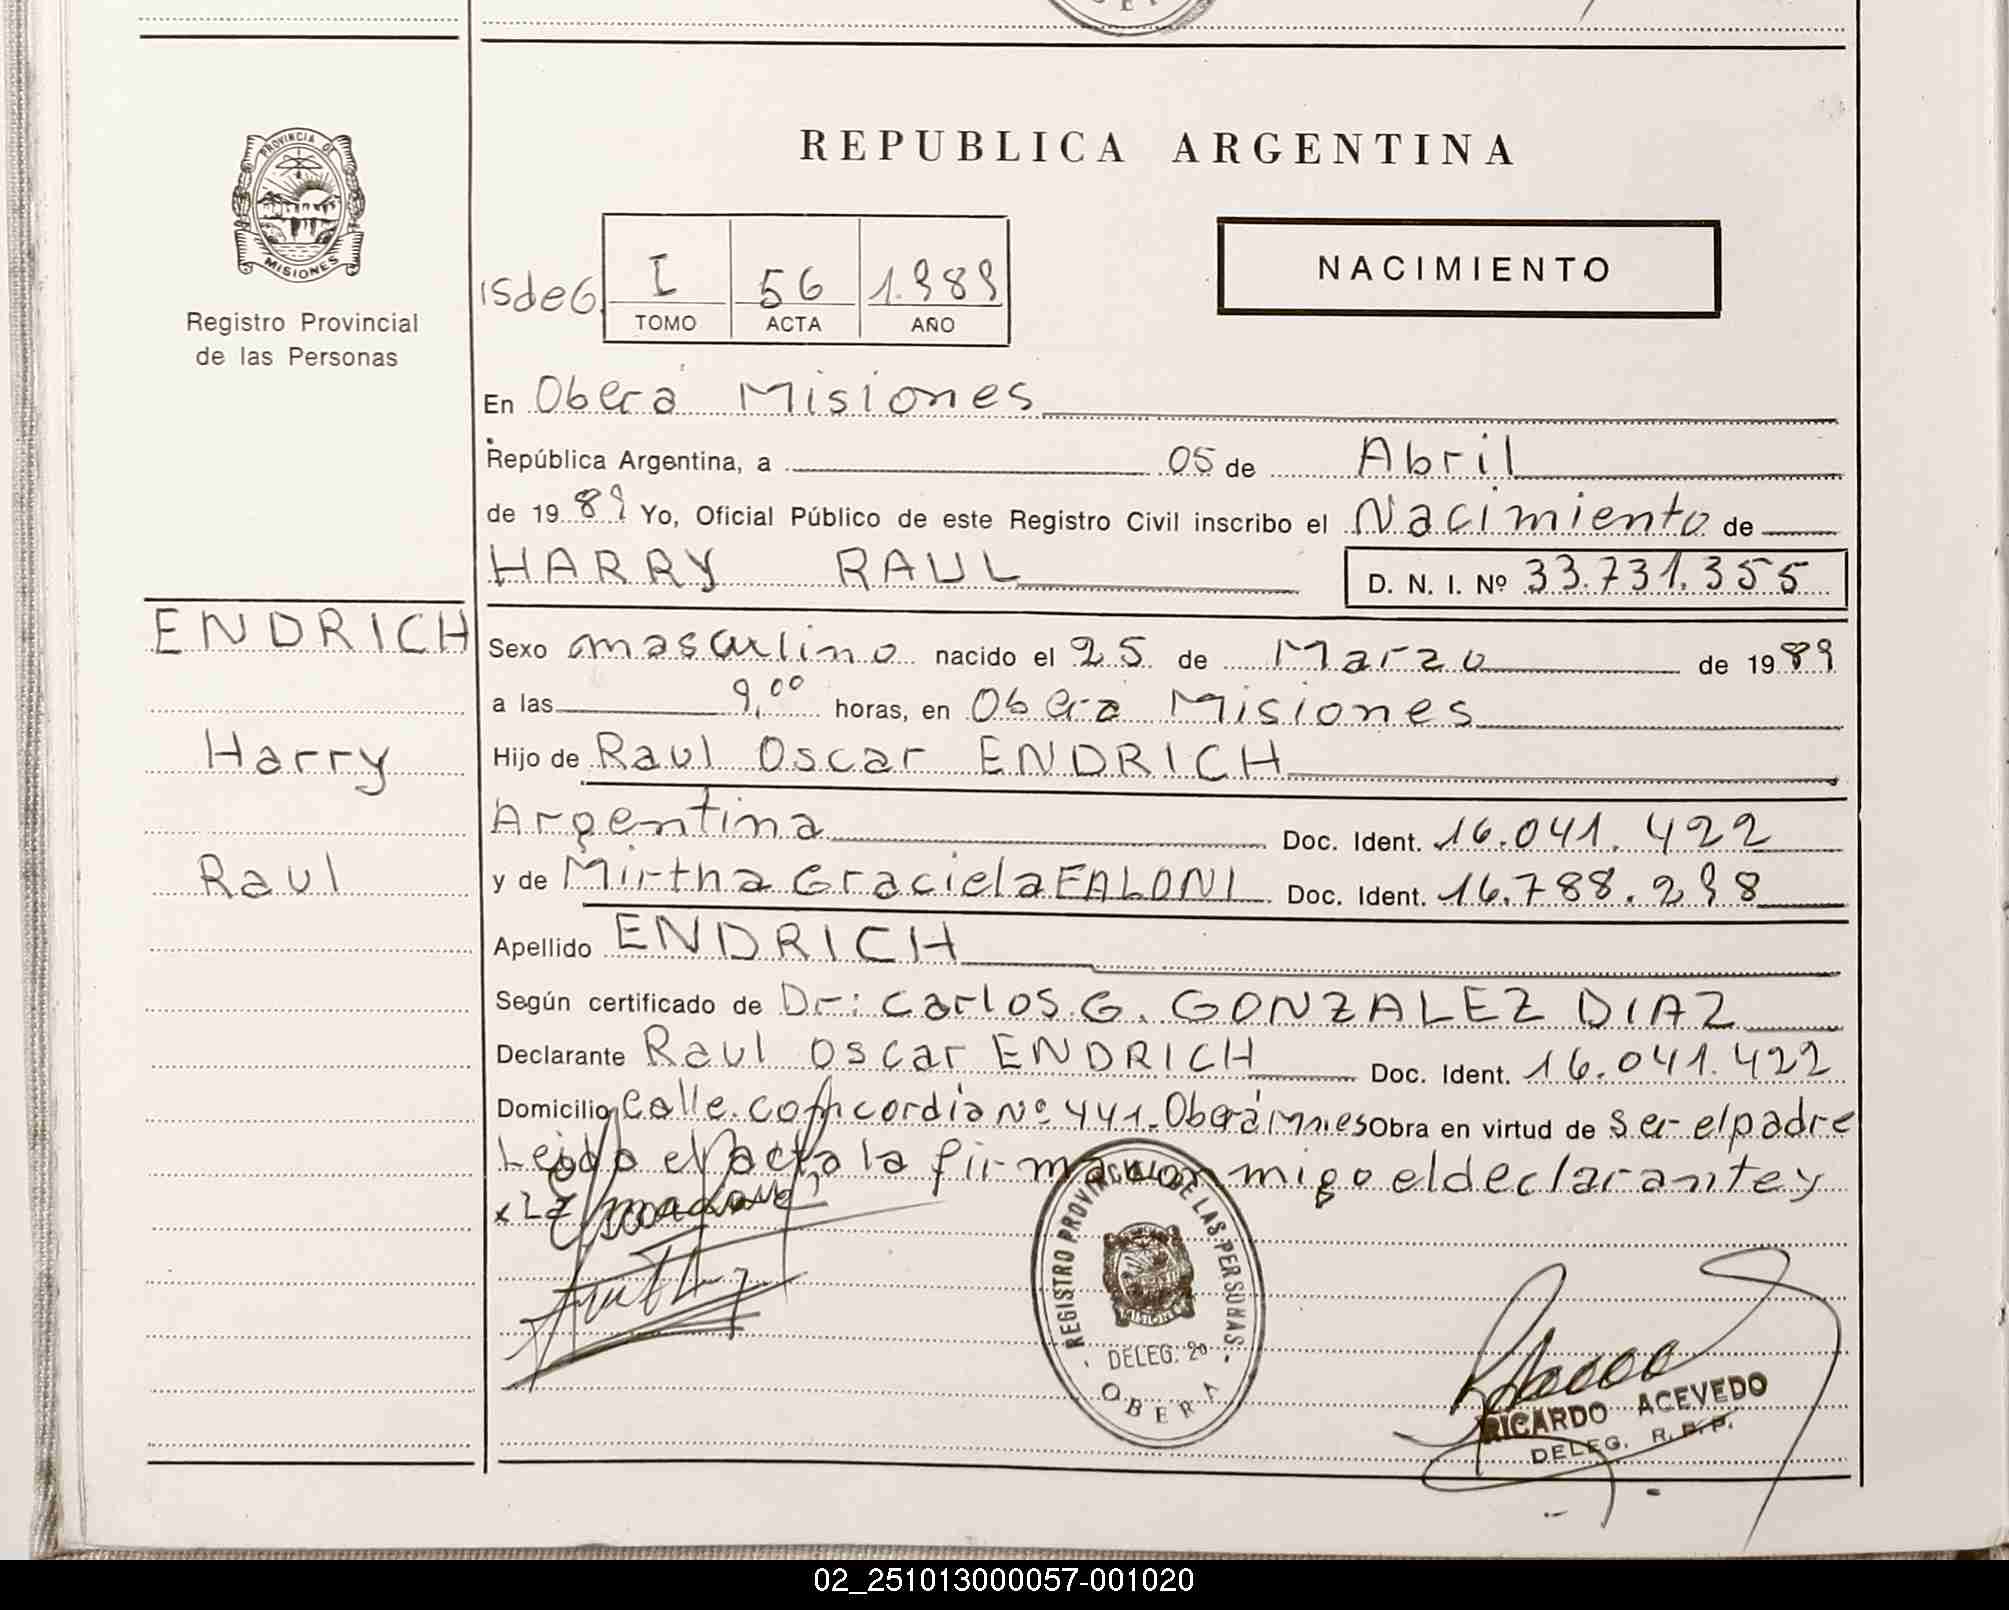 REPUBLICA ARGENTINA
PROVINCIA DE
MISIONES
Registro Provincial
de las Personas
NACIMIENTO
15deG. I 56 1.989
TOMO ACTA AÑO
En Oberá Misiones
República Argentina, a 05 de Abril
de 1989 Yo, Oficial Público de este Registro Civil inscribo el Nacimiento de
HARRY RAUL D. N. I. Nº 33.731.355
ENDRICH
Harry
Raul
Sexo masculino nacido el 25 de Marzo de 1989
a las 9,00 horas, en Oberá Misiones
Hijo de Raul Oscar ENDRICH
Argentina Doc. Ident. 16.041.422
y de Mirtha Graciela FALONI Doc. Ident. 16.788.298
Apellido ENDRICH
Según certificado de Dr: Carlos G. GONZALEZ DIAZ
Declarante Raul Oscar ENDRICH Doc. Ident. 16.041.422
Domicilio Calle Concordia Nº 441. Oberá Mnes Obra en virtud de ser el padre
Leida el acta la firman conmigo el declarante y
x La madre
REGISTRO PROVINCIAL DE LAS PERSONAS
MISIONES
DELEG. 2º
OBERA
RICARDO ACEVEDO
DELEG. R. P. P.
02_251013000057-001020